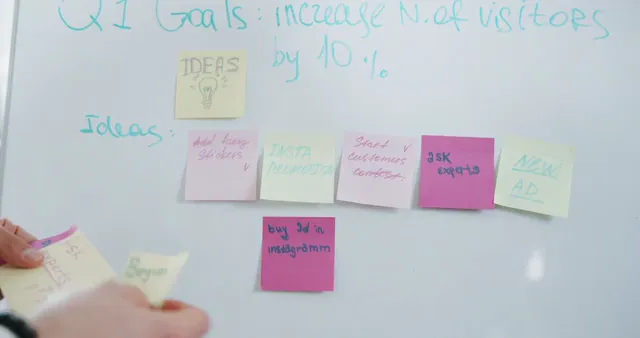 Q1 Goals: increase N. of visitors
by 10 %
IDEAS
Ideas:
Add funny
stickers
INSTA
PROMOTION
Start
customers
contest
ask
experts
NEW
AD
buy ad in
instagramm